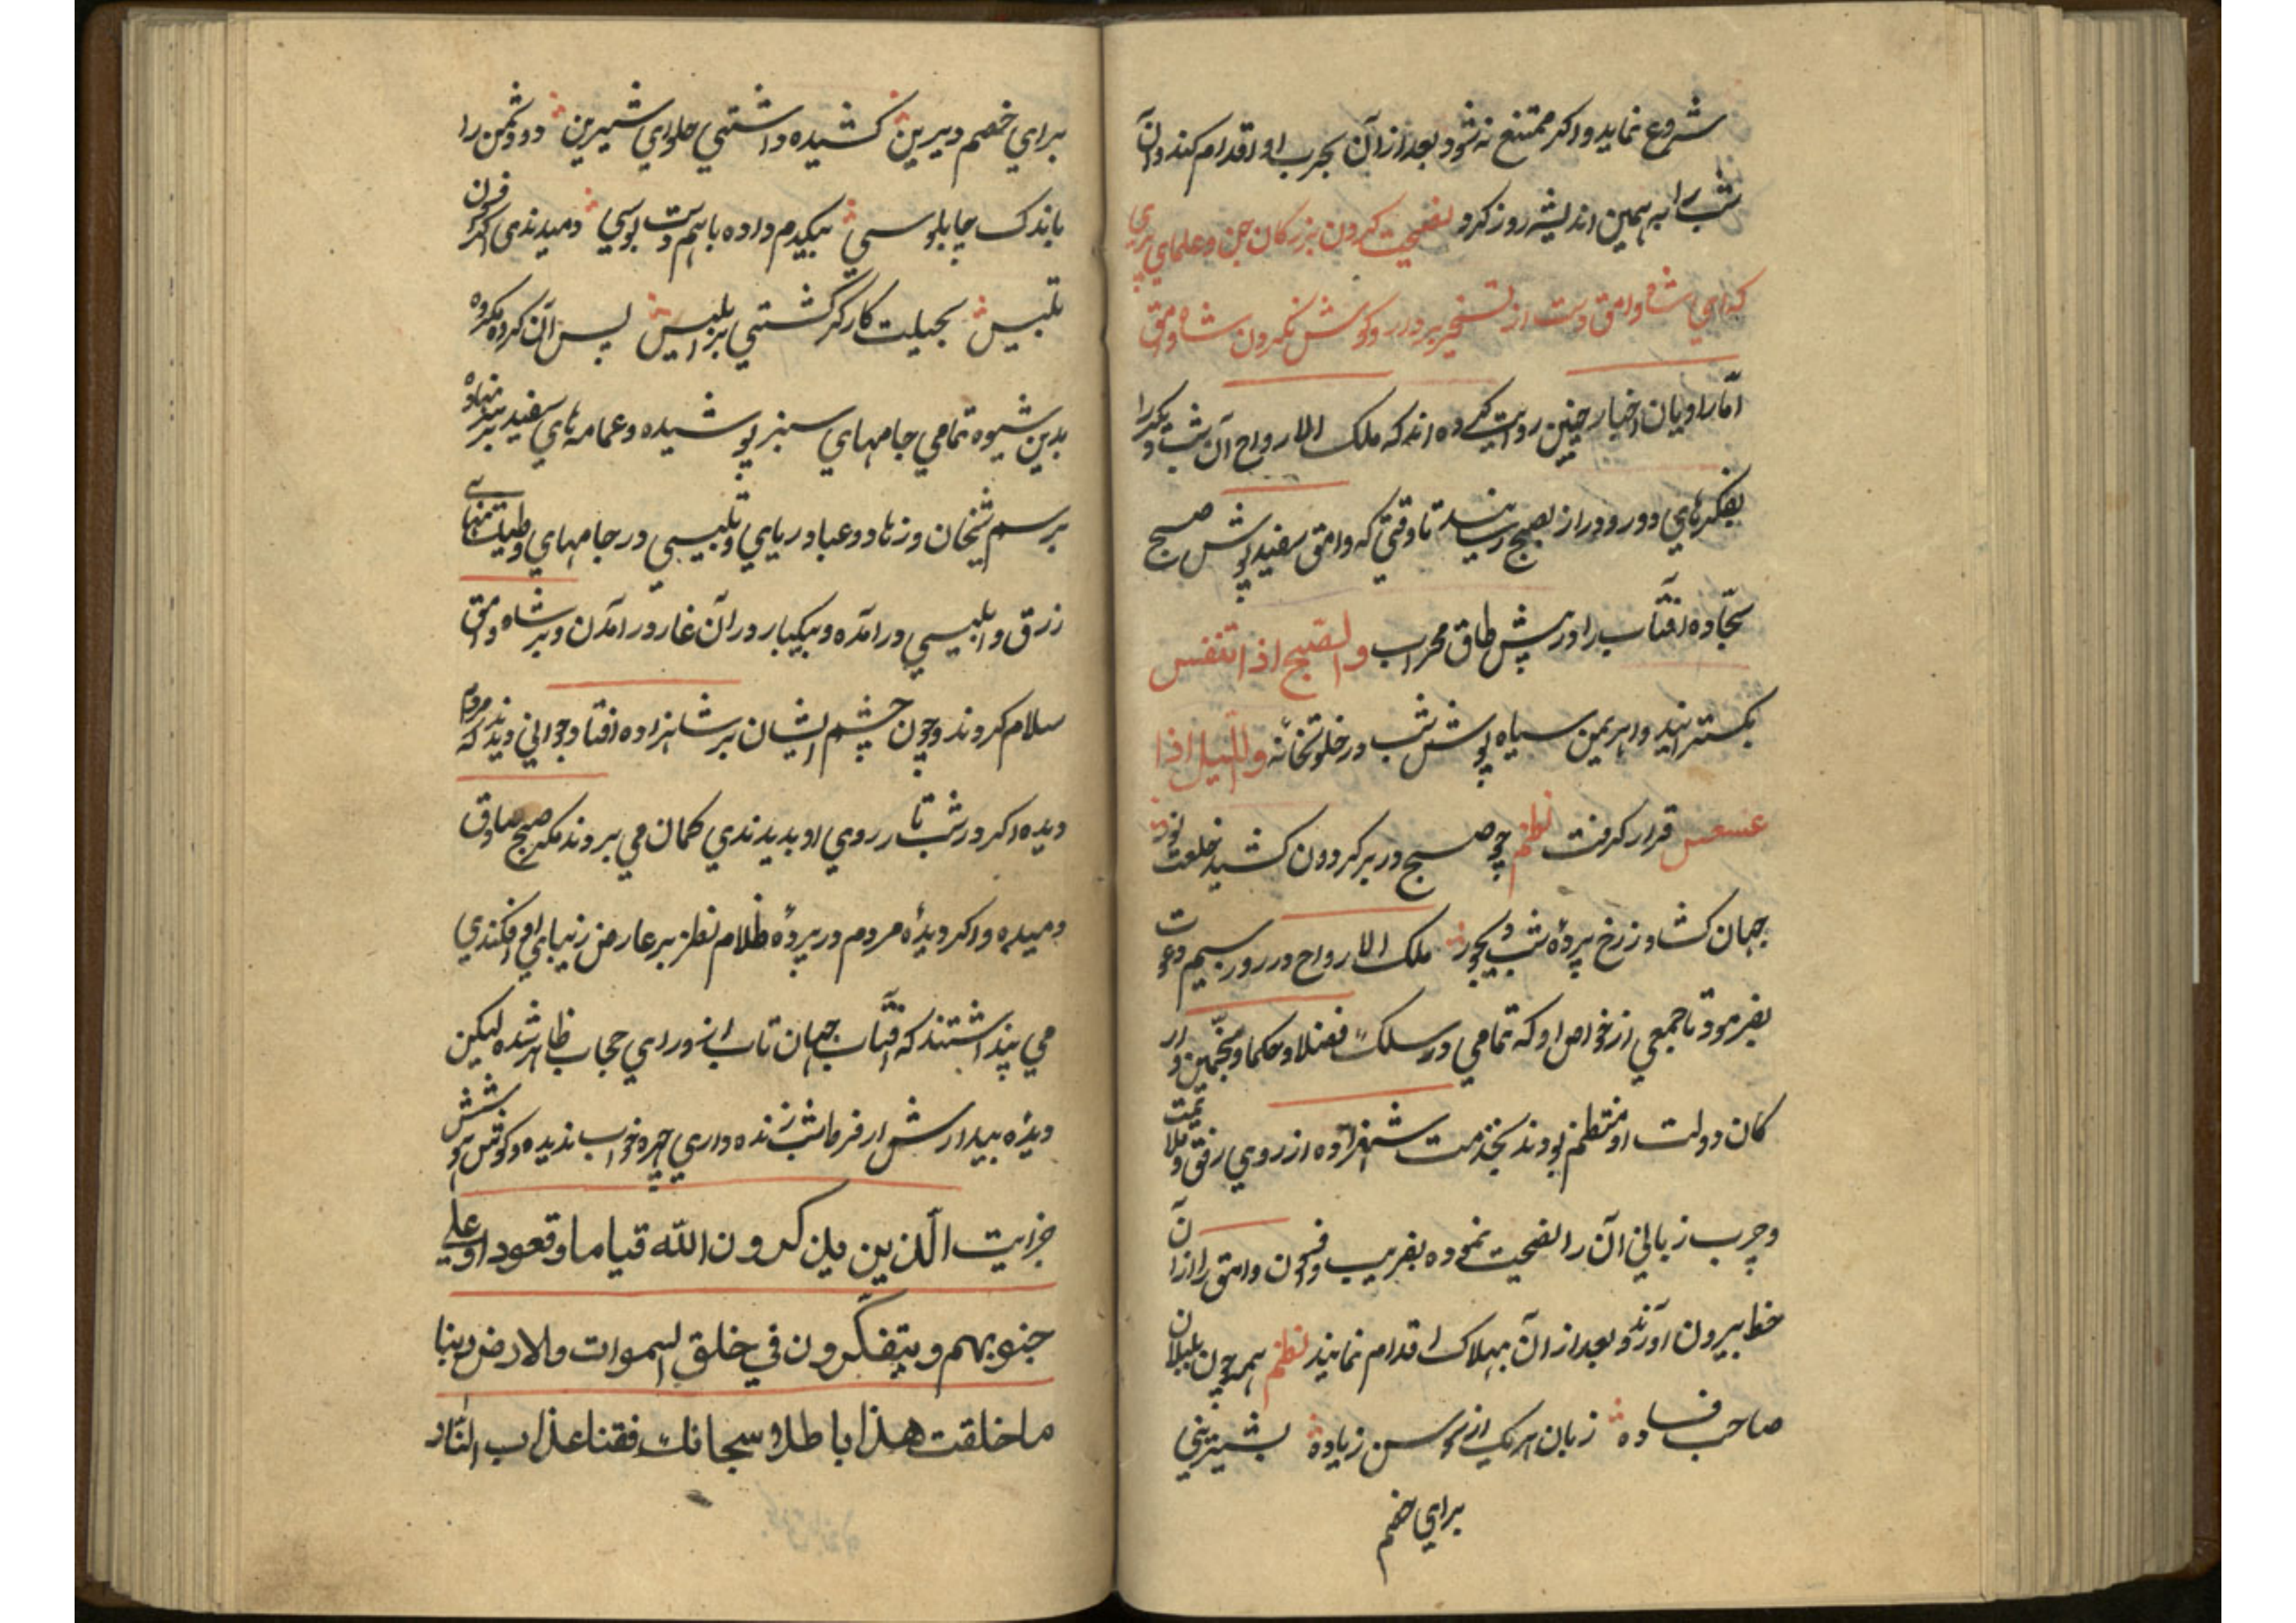 شروع نماید و اکر ممتنع نه شود بعد از ان بحرب او اقدام کند و آن
شب را به همین اندیشه روز کرد نصیحت کردن بزرکان جن و علمای پری
که ای شاه وامق دست از تسخیر بردار و کوش نکردن شاه وامق
اما راویان اخبار چنین روایت کرده اند که ملک الارواح آن شب دیکر را
بفکرهای دور و دراز بصبح رسانید تا وقتی که وامق سفید پوش صبح
سجّاده آفتاب را در پیش طاق محراب والصبح اذا تنفس
بکسترانید و اهریمن سیاه پوش شب در خلوتخانه واللیل اذا
عسعس قرار کرفت نظم چو صبح در بر کردون کشید خلعت نور
جهان کشاد ز رخ پردهٔ شب دیجور ملک الارواح در روز سیم دعوت
بفرمود تا جمعی از خواص او که تمامی در سلک فضلا و حکما و منجّمین و ار
کان دولت او منتظم بودند بخدمت شهزاده از روی رفق و ملایمت
و چرب زبانی آن را نصیحت نموده بفریب و فسون وامق را از آن
خطا بیرون آورند و بعد از ان بهلاک اقدام نمایند نظم همه چون بلبلان
صاحب فساده زبان هریک از سوسن زیاده بشیرینی
برای خصم
برای خصم دیرین کشیده داشتی حلوای شیرین دو دشمن را
باندک چاپلوسی بیکدم داده باهم دست بوسی دمیدندی اکر فن
تلبیس بحیلت کارکر کشتی بر ابلیس پس آن کرده مکروه
بدین شیوه تمامی جامهای سبز پوشیده و عمامه های سفید بر سر نهاده
برسم شیخان و زهاد و عباد ریای و تلبیسی در جامهای
زرق و ابلیسی در آمده و بیکبار در آن غار در آمدن و بر شاه وامق
سلام کردند و چون چشم ایشان بر شاهزاده افتاد جوانی دیدند که مردم
دیده اکر در شب تار روی او بدیدندی کمان می بردند مکر صبح صادق
دمیده و اکر دیدهٔ مردم در پردهٔ ظلام نظر بر عارض زیبای او افکندی
می پنداشتند که آفتاب جهان تاب از ورای حجاب ظاهر شده لیکن
دیدهٔ بیدارش از فرط شب زنده داری چهره خواب ندیده و کوش هوشش
جز ایت الّذین یذکرون الله قیاما و قعودا و علی
جنوبهم و یتفکّرون في خلق السموات والارض ربنا
ما خلقت هذا باطلا سبحانک فقنا عذاب النّار